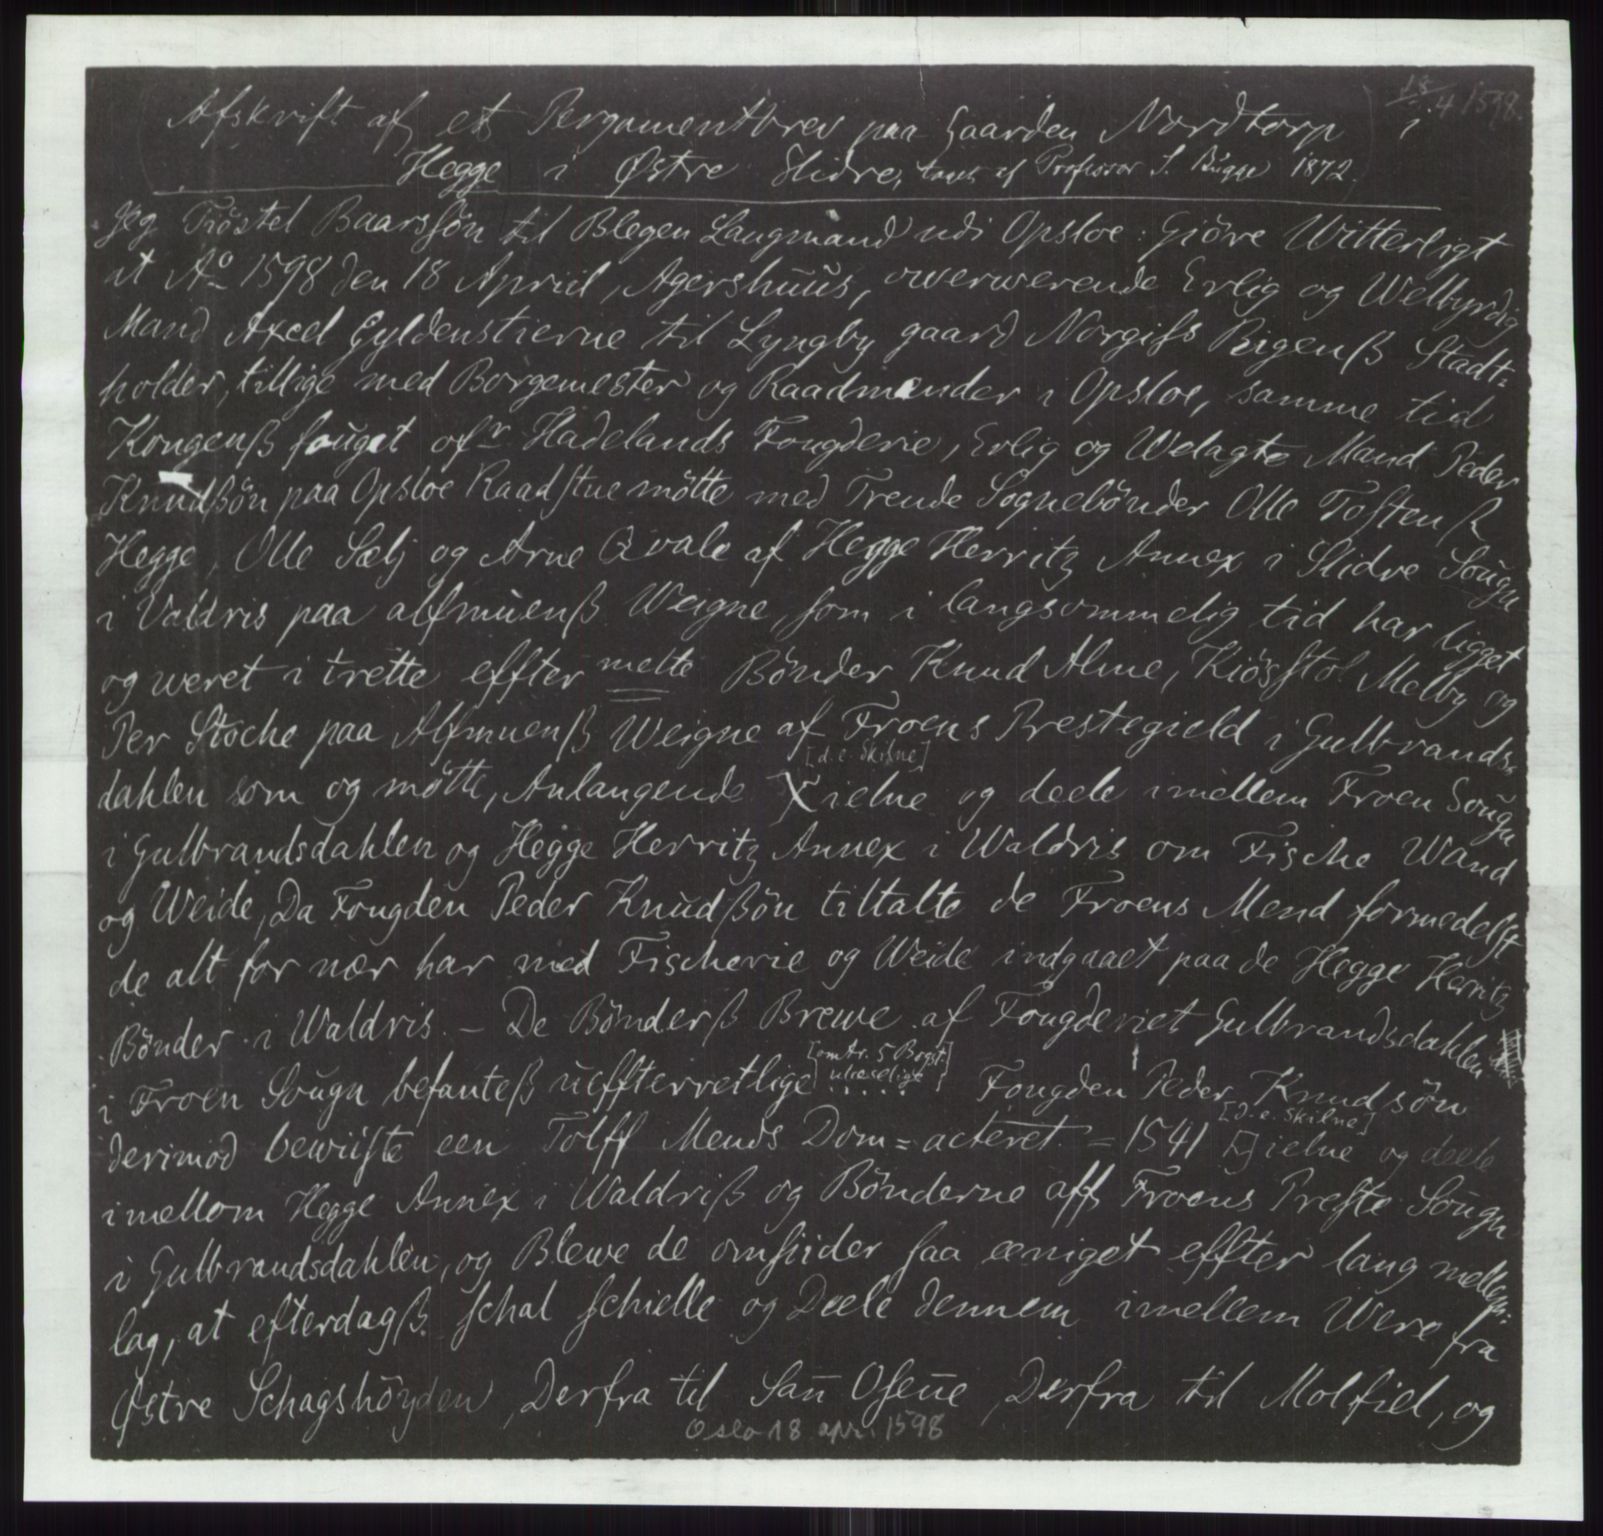 18/4 1598.
Afskrift af et Pergamentbrev paa Gaarden Nordtorp i
Hegge i Østre Slidre, taget af Professor S. Bugge 1872.
Jeg Tröstel Baarssön til Blegen Laugmand udi Opsloe: Giöre Witterligt
at Ao 1598 den 18 Apriil, Agershuus, owerwerende Erlig og Welbyrdig
Mand Axel Gyldenstierne til Lyngby gaard Norgiss Rigenß Stadt=
holder, tillige med Borgemester og Raadmender i Opsloe, samme tid
Kongenß fouget ofr Hadelands Fougderie, Erlig og Welagte Mand Peder
Knudßön paa Opsloe Raadstue mötte med Trende Sognebönder Olle Tostenß
Hegge, Olle Sælj og Arne Qvale af Hegge Herritz Annex i Slidre Sougn
i Valdris paa alfmuenß Weigne, som i langsommelig tid har ligget
og weret i trette effter melte Bönder Knud Alme, Kiösstol Melby og
Per Stoche paa Alfmuenß Weigne af Froens Prestegield i Gulbrands=
[d.e. Skilne]
dahlen som og mötte, Anlangende [ ielne og deele imellem Froen Sougn
i Gulbrandsdahlen og Hegge Herritz Annex i Waldris om Fische Wand
og Weide, Da Fougden Peder Knudßön tiltalte de Froens Mend formedelst
de alt for nær har med Fischerie og Weide indgaaet paa de Hegge Herritz
Bönder i Waldris. – De Bönderß Brewe af Fougderiet Gulbrandsdahlen
[omtr. 5 Bogst. ulæselige]
i Froen Sougn befanteß ueffterretlige . . . . Fougden Peder Knudsön
[d.e. Skilne]
derimod bewiiste een Tolff Mends Dom = acteret = 1541 [ ]ielne og deele
imellom Hegge Annex i Waldriß og Bönderne aff Froens Preste Sougn
i Gulbrandsdahlen, og Blewe de omsiider saa eeniget effter lang mellem=
lag, at efterdagß schal schielle og Deele dennem imellem Were fra
Østre Schagshöyden, Derfra til Sau Oseue, Derfra til Molfiel, og
Oslo 18 apr. 1598